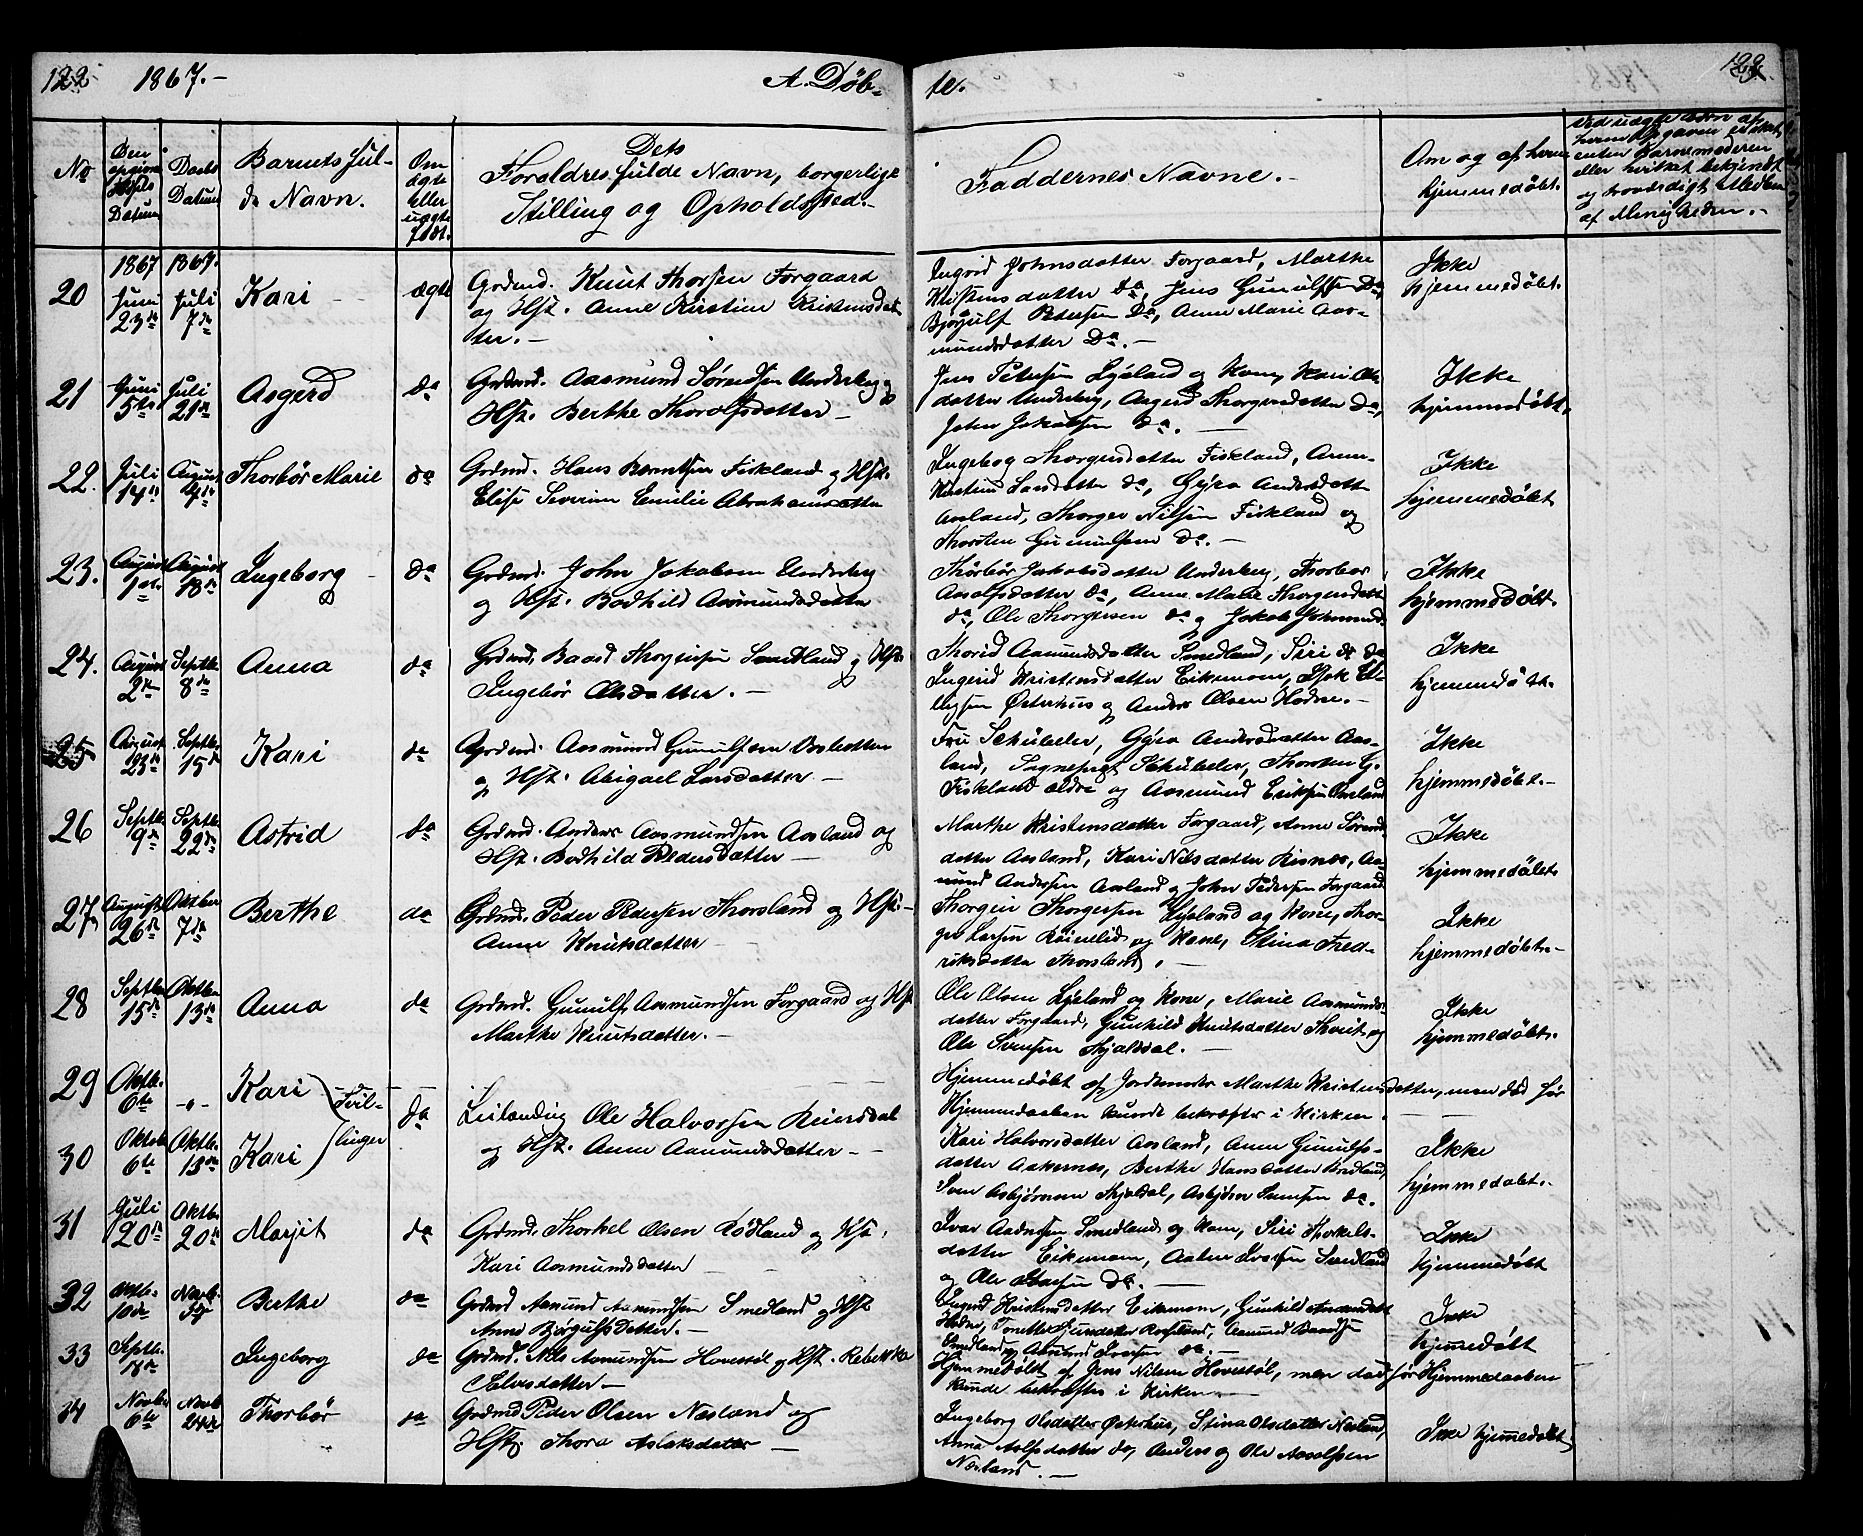 122 1867.- A. Døb-
te. 123.
No
Den
Daabs
Datum
Barnets ful-
de Navn.
Om
ægte
eller
uægte
født.
Dets
Forældres fulde Navn, borgerlige
Stilling og Opholdssted.-
Faddernes Navne.-
Om og af hvem
hjemmedøbt.
Ved uægte Børn af
enten Barnemoderen
eller hvilket bekjendt
og troværdigt Medlem
af Menigheden.-
20 1867 Juni 23de 1867. Juli 7de Kari ægte Grdmd. Knut Thorsen Forgaard
og Hst. Anne Kirstine Kristensdat
ter.-
Ingrid Johnsdatter Forgaard, Marthe
Kristensdatter da, Jens Gunulfsen Da,
Bjørgulf Petersen Da, Anne Marie Aas-
mundsdatter Da.-
Ikke
hjemmedøbt.
21 Juni 5te Juli 21de Asgerd da Grdmd. Aasmund Sørensen Underberg og
Hst. Berthe Thorolfsdatter-
Jens Petersen Lyland og Kone, Kari Ols
datter Underberg, Asgerd Thorgersdatter Da,
John Jakobsen da.-
Ikke
hjemmedøbt.
22. Juli 14de August 4de Thorbør Marie da Grdmd. Hans Berntsen Fiskland og Hst.
Elise Severine Emilie Abrahamsdatter
Ingeborg Thorgersdatter Fiskland, Anne
Kirstine Larsdatter da, Gyro Andersdatter
Aasland, Thorger Nilsen Fiskland og
Thorsten Gunulfsen Da.-
Ikke
hjemmedøbt
23. August 1ste August 18de Ingeborg da Grdmd. John Jakobsen Underberg
og Hst. Bodhild Aasmundsdatter
Thorbør Jakobsdatter Underberg, Thorbør
Aasolfsdatter da, Anne Marie Thorgersdatt
da, Ole Thorgersen da og Jakob Johnsen da
Ikke
hjemmedøbt.
24. August 2de Septbr. 8de Anna da Grdmd. Baard Thorgiusen Smedland og Hst.
Ingebør Olsdatter.-
Thorid Aamundsdatter Smedland, Siri do da
Ingerid Kristensdatter Eikemom,
Østerhus og Anders Olsen Hodne.-
Ikke
hjemmedøbt.
25 August 23de Septbr. 15de Kari da Grdmd. Aasmund Gunulfsen
og Hst. Abigael Larsdatter-
Fru Schübeler, Gyro Andersdatter Aas-
land, Sognepræst Schübeler, Thorsten G.
Fiskland ældre og Aasmund Eriksen Aasland
Ikke
hjemmedøbt.-
26 Septbr. 9de Septbr. 22de Astrid da Grdmd. Anders Aasmundsen Aasland og
Hst. Bodhild Pedersdatter-
Marthe Kristensdatter Forgaard, Anne Sørens
datter Aasland, Kari Nilsdatter Risnes, Aa-
mund Andersen Aasland og John Pedersen Forgaard
Ikke
hjemmedøbt.
27. August 26de Oktober 7de Berthe da Grdmd. Peder Pedersen Thorsland og Hst.-
Anne Knutsdatter-
Thorgeir Thorgersen Lyland og Kone, Thor-
ger Larsen Røinelid og Kone, Stina Fred-
riksdatter Thorsland.-
Ikke
hjemmedøbt.-
28 Septbr. 15de Oktbr. 13de Anna da Grdmd. Gunulf Aasmundsen Forgaard og Hst
Marthe Knutsdatter.-
Ole Olsen Lyland og Kone, Marie Aasmunds
datter Forgaard, Gunhild Knutsdatter Thveit og
Ole Svensen Skjeldal.-
Ikke
hjemmedøbt.
29 Oktbr. 6te -"- Kari Tvil-
linger
da Leilænding Ole Halvorsen Reiersdal
og Hst. Anne Aamundsdatter--
Hjemmedøbt af Jordemoder Marthe Kristensdatter, men død før
Hjemmedaaben kunde bekræftes i Kirken.
30 Oktobr 6te Oktbr. 13de Kari
Kari Halvorsdatter Aasland, Anne Gunulfs-
datter Aakernes, Berthe Hansdatter Bredland,
Sven Asbjørnsen Skjeldal, Asbjørn Svensen da.
Ikke
hjemmedøbt.
31 Juli 20de Oktbr. 20de Marjit da Grdmd. Thorkel Olsen Rødland og Hst.
Kari Aasmundsdatter-
Ivar Aadnesen Smedland og Kone, Siri Thorkels-
datter Eikemom, Aadne Ivarsen Smedland
og Ole Ivarsen da.-
Ikke
hjemmedøbt
32 Oktbr. 10de Novbr. 3de Berthe da Grdmd Aamund Aamundsen Smedland og Hst
Anne Bjørgulfsdatter.-
Ingerid Kristensdatter Eikemom, Gunhild Andersdatt
Hodne, Tonette Gundersdatter Rosseland, Aamund Baardsen
Smedland og Aamund Ivarsen da.-
Ikke
hjemmedøbt
33 Septbr. 18de Ingeborg da Grdmd. Nils Aamundsen Hovestøl og Hst. Rebekka
Salvesdatter-
Hjemmedøbt af Jens Nilsen Hovestøl, men død før Hjemmedaaben
kunde bekræftes i Kirken-
34 Novbr 6te Novbr 24de Thorbør da Grdmd Peder Olsen Nesland og
Hst. Thora Aslaksdatter-
Ingeborg Olsdatter Østerhus, Stina Olsdatter Nesland,
Anna Aslfsdatter do, Anders og Ole Aasolfsen
Nesland.-
Ikke hjemmedøbt